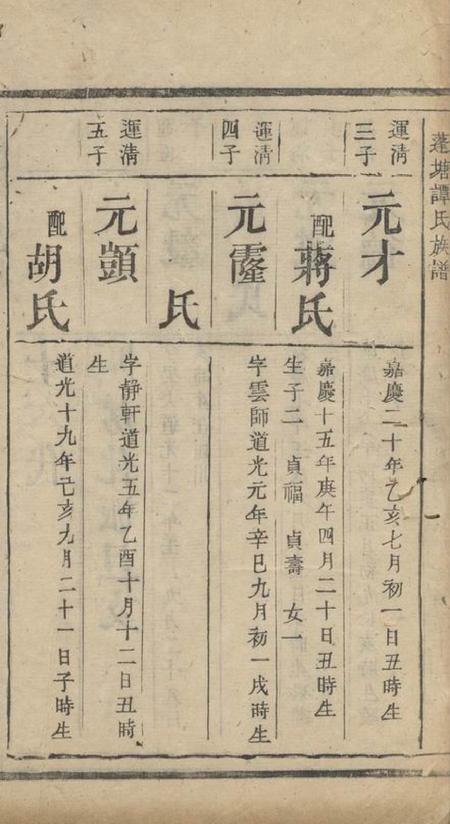 蓬塘譚氏族譜
運清三子
元才
嘉慶二十年乙亥七月初一日丑時生
配蔣氏
嘉慶十五年庚午四月二十日丑時生
生子二 貞福 貞壽 女一
運清四子
元霳
字雲師道光元年辛巳九月初一戌時生
氏
運清五子
元顗
字靜軒道光五年乙酉十月十二日丑時生
配胡氏
道光十九年己亥九月二十一日子時生